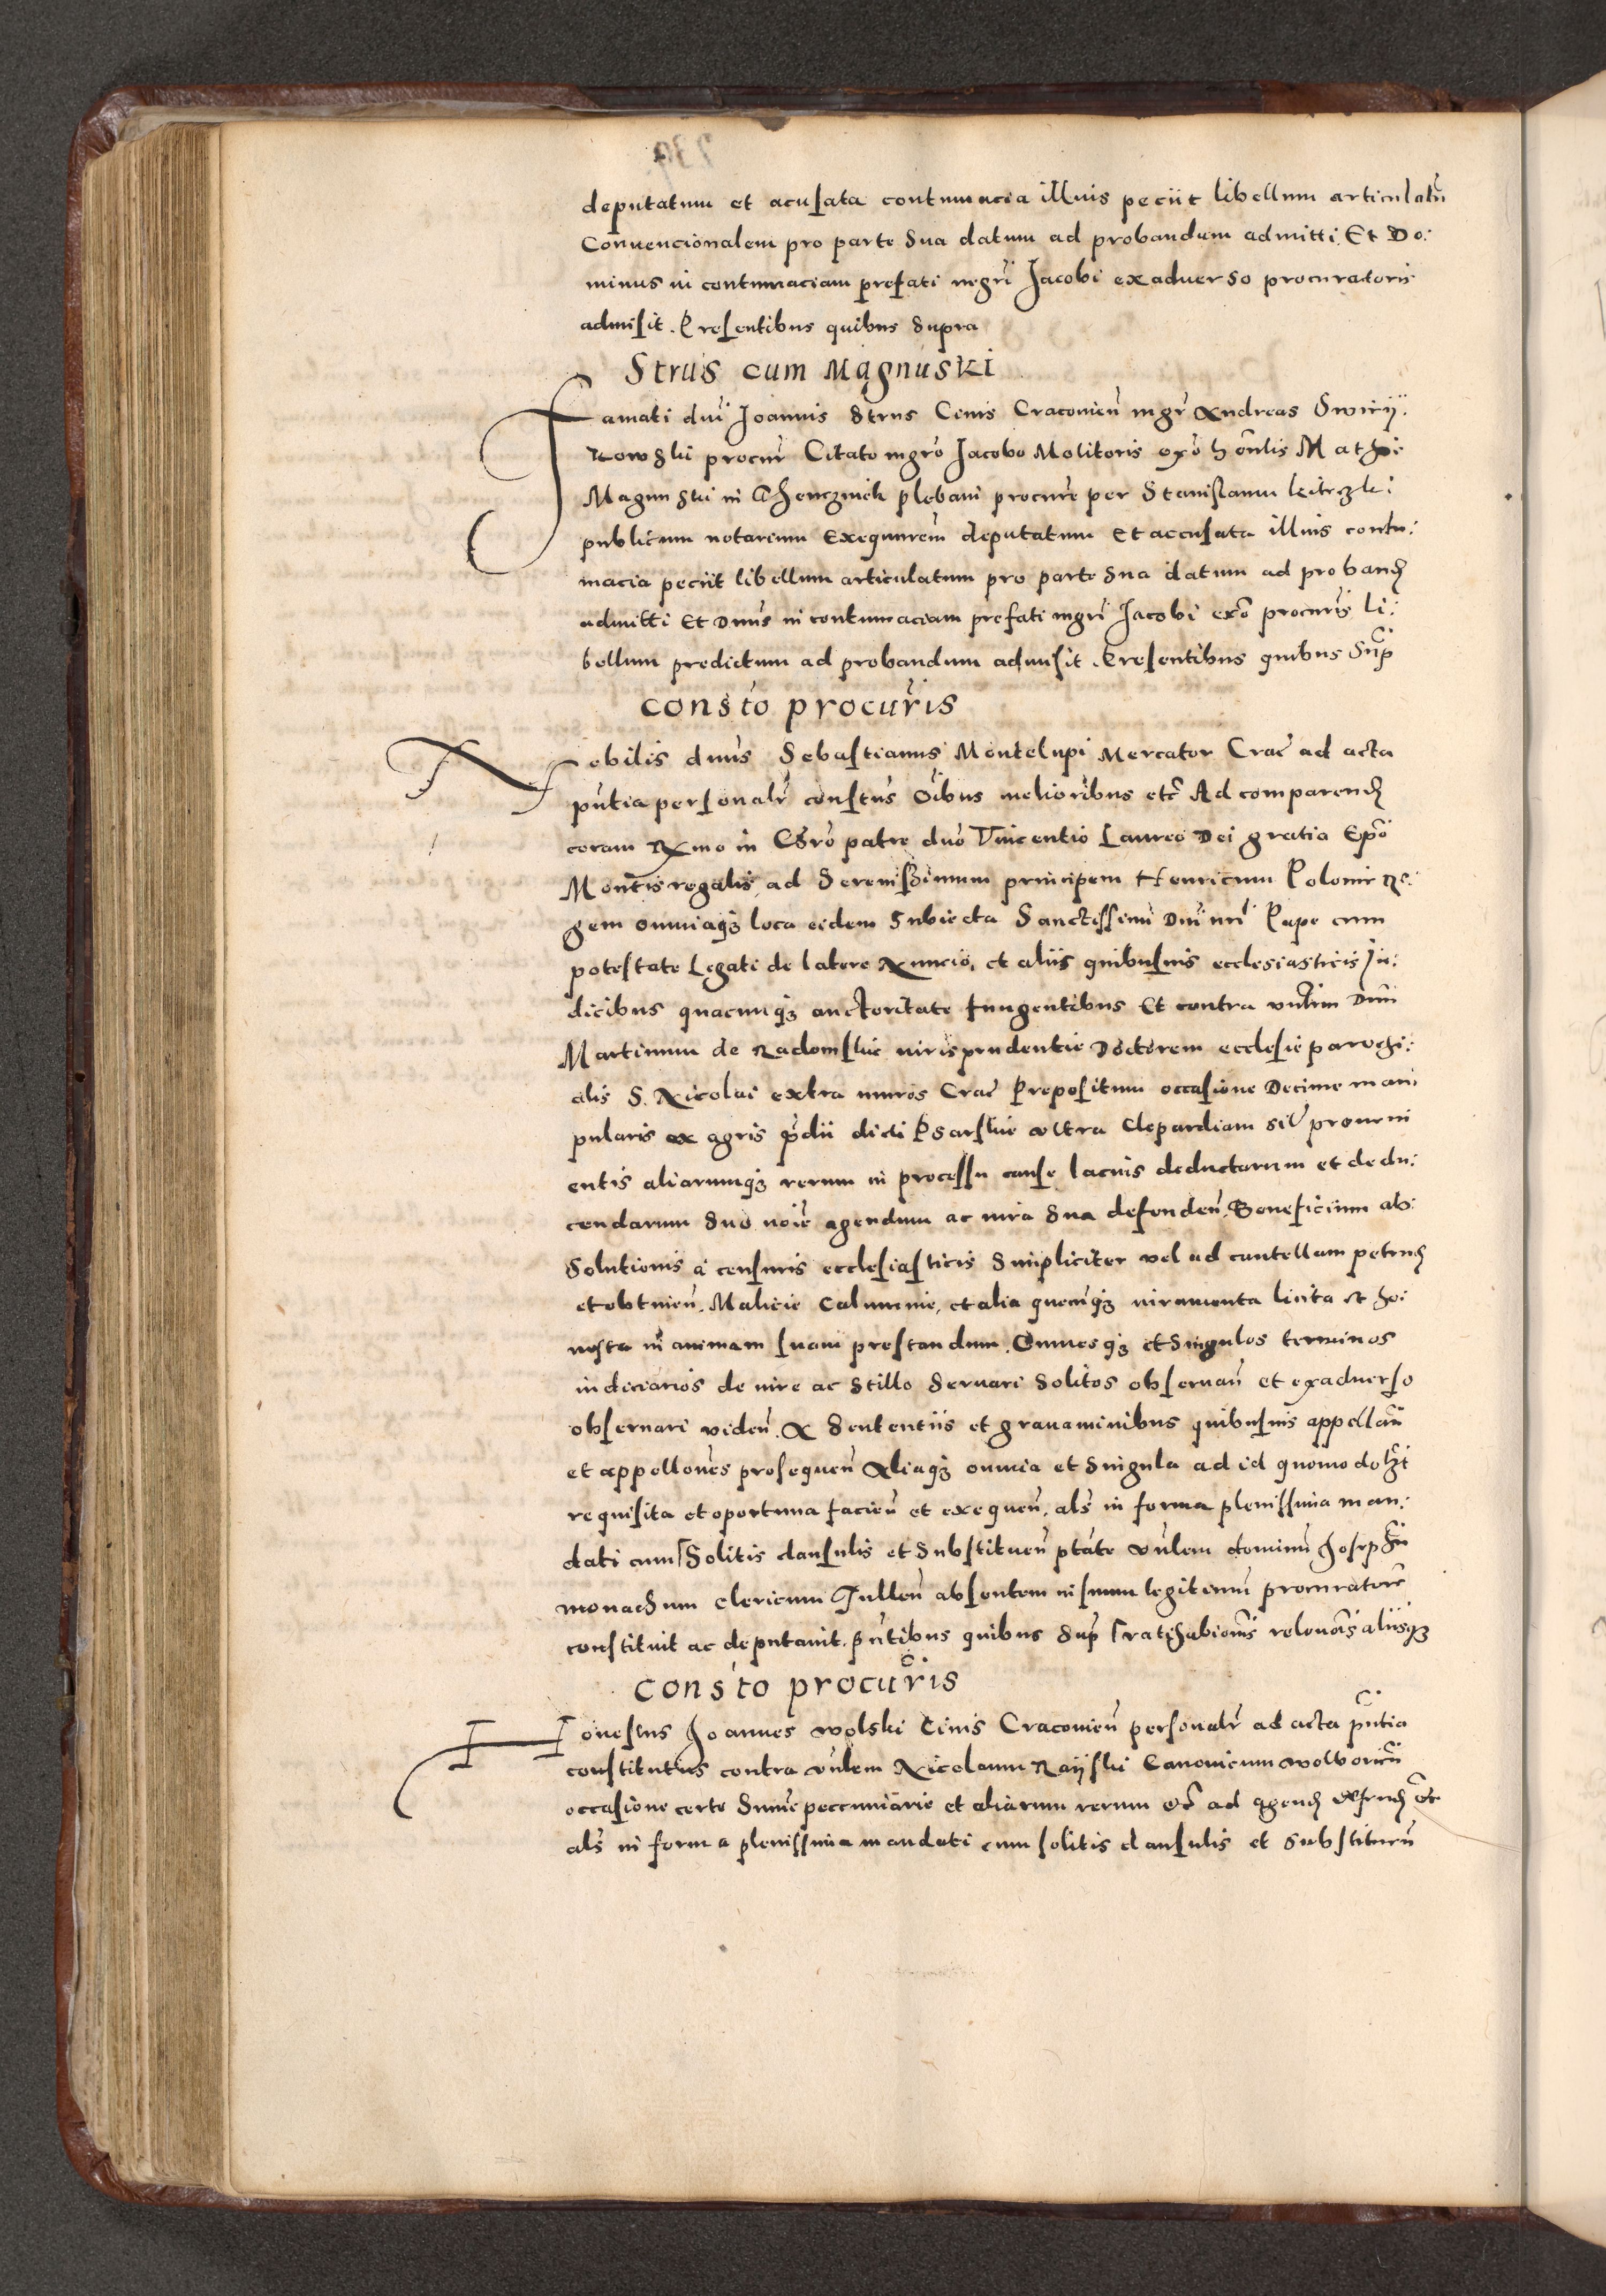 deputatum et acusata contumacia illius peciit libellum articulatũ
Convencionalem pro parte sua datum ad probandum admitti. Et Do:
minus in contumaciam prefati mgri Jacobi ex adverso procuratoris
admisit. Presentibus quibus supra
Strus cum Magnuski
Famati dni Joannis Strus Civis Craconien̄ mgr Andreas Swirÿ:
kowski procur̄ Citato mgrō Jacobo Molitoris exō honlis Mathie
Magnuski in Chenczinek plebani procure per Stanislaum
publicum notarium Exequnrem deputatum et accusata illius contu:
macia peciit libellum articulatum pro parte sua datum ad proband
admitti Et Dnus in contumaciam prefati mgri Jacobi exō procuris li:
bellum predictum ad probandum admisit. Presentibus quibus sup̄
Consto procuris
Nobilis dnus Sebastianus Montelupi Mercator Crac̄ ad acta
pn̄tia personalr̄ constus Oibus melioribus etc̄ Ad comparend
coram Rxmo in Chrō patre dnō Vincentio Laureo Dei gratia Epō
Montisregalis ad Serenissimum principem Henricum Polonie Re:
gem omniaqȝ loca eidem subiecta Sanctissimi Dni nri Pape cum
potestate Legati de latere Nuncio, et aliis quibusuis ecclesiasticis Ju:
dicibus quacunqȝ auctoritate fungentibus Et contra vnlem Dnm
Martinum de Radomskie iurisprudentie Doctorem ecclesie parochi:
alis S. Nicolai extra muros Crac̄ Prepositum occasione Decime mani
pularis ex agris predii dicti Psarskie vltra Clepardiam siue proueni
entis aliarumqȝ rerum in processu cause lacius deductarum et dedu:
cendarum suo noīe agendum ac iura sua defenden̄. Beneficium ab:
solutionis a censuris ecclesiasticis simpliciter vel ad cautellam petend
et obtinen̄. Malicie Calumnie, et alia quecūqȝ iuramenta licita et ho:
nesta in animam suam prestandum. Omnesqȝ et singulos terminos
iudiciarios de iure ac stillo seruari solitos obseruan̄ et exaduerso
obseruari viden̄. A sententiis et grauaminibus quibusuis appellan̄
et appellones prosequen̄ Aliaqȝ omnia et singula ad id quomodolȝt
requisita et oportuna facien̄ et exequen̄. als̄ in forma plenissima man:
dati cum solitis clausulis et substituen̄ ptate vnlem dominū Joseph
monachum clericum Jullen̄ absentem in suum legitimū procuratorē
constituit ac deputauit. pn̄tibus quibus sup̄ ratihabionis releuonis aliisqȝ
Consto procuris
Honestus Joannes Wolski Civis Craconien̄ personalr̄ ad acta pn̄tia
constitutus contra vnlem Nicolaum Rayski Canonicum wolboriēn
occasione certe Summe peccuniarie et aliarum rerum etc̄ ad agend defend etc̄
als̄ in forma plenissima mandati cum solitis clausulis et substituen̄